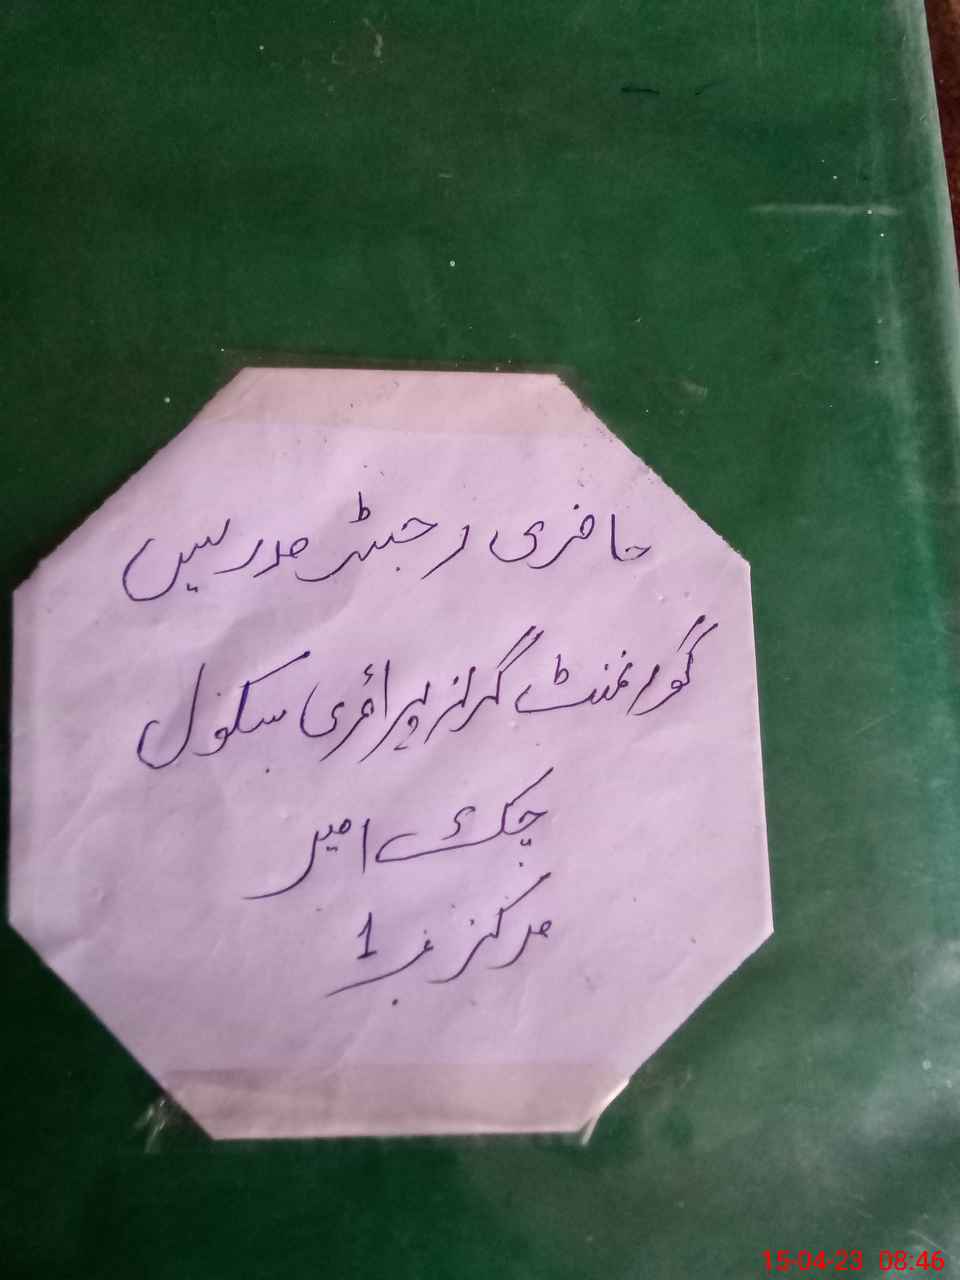 حاضری رجسٹر مدرسین
گورنمنٹ گرلز پرائمری سکول
چک امیر
مرکز نمبر 1
15-04-23 08:46